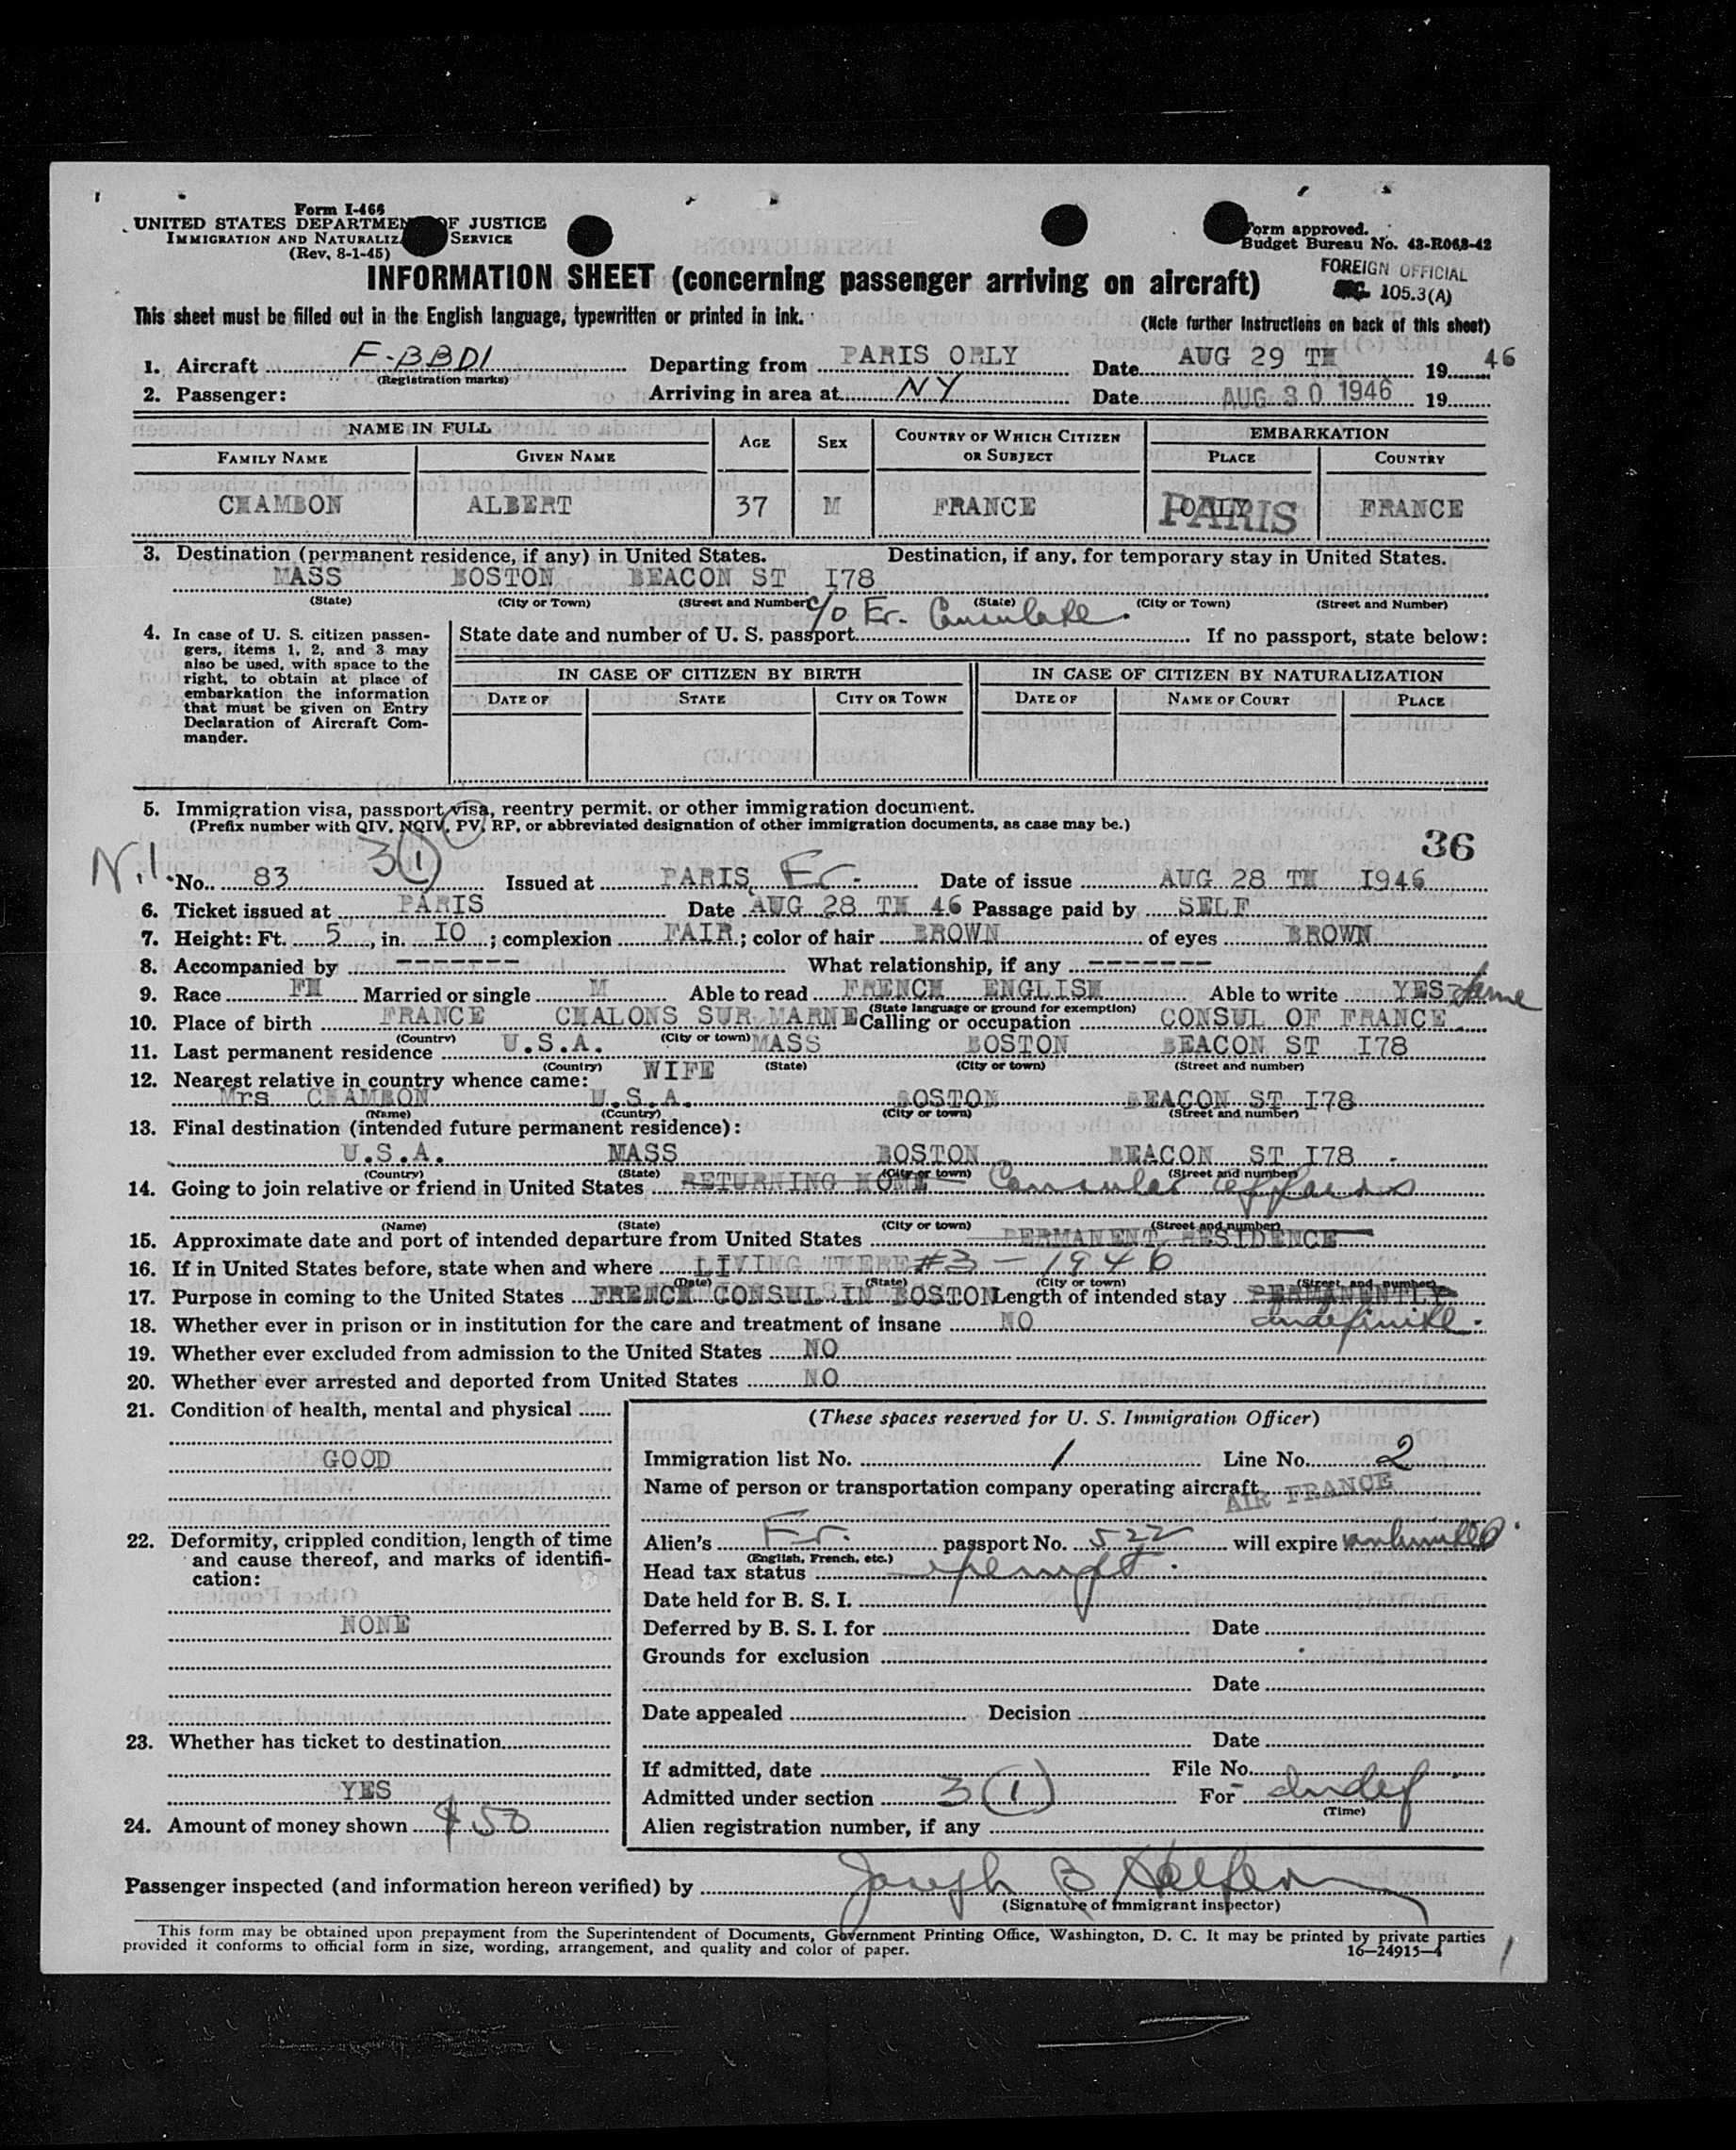 Form I-466
UNITED STATES DEPARTMENT OF JUSTICE
IMMIGRATION AND NATURALIZ SERVICE
(Rev. 8-1-45)
Form approved.
Budget Bureau No. 43-R063-42
FOREIGN OFFICIAL
105.3(A)
INFORMATION SHEET (concerning passenger arriving on aircraft)
This sheet must be filled out in the English language, typewritten or printed in ink.
(Note further instructions on back of this sheet)
1. Aircraft F-BBDI Departing from PARIS ORLY Date AUG 29 TH 1946
(Registration marks)
2. Passenger: Arriving in area at NY Date AUG 30 1946 19
NAME IN FULL AGE SEX COUNTRY OF WHICH CITIZEN OR SUBJECT EMBARKATION
FAMILY NAME GIVEN NAME PLACE COUNTRY
CHAMBON ALBERT 37 M FRANCE ORLY PARIS FRANCE
3. Destination (permanent residence, if any) in United States. Destination, if any, for temporary stay in United States.
MASS BOSTON BEACON ST I78
(State) (City or Town) (Street and Number) (State) (City or Town) (Street and Number)
c/o Fr. Consulate.
4. In case of U. S. citizen passengers, items 1, 2, and 3 may also be used, with space to the right, to obtain at place of embarkation the information that must be given on Entry Declaration of Aircraft Commander.
State date and number of U. S. passport If no passport, state below:
IN CASE OF CITIZEN BY BIRTH IN CASE OF CITIZEN BY NATURALIZATION
DATE OF STATE CITY OR TOWN DATE OF NAME OF COURT PLACE
5. Immigration visa, passport visa, reentry permit, or other immigration document.
(Prefix number with QIV, NQIV, PV, RP, or abbreviated designation of other immigration documents, as case may be.)
36
N.I. No. 83 3(1) Issued at PARIS Fr. Date of issue AUG 28 TH I946
6. Ticket issued at PARIS Date AUG 28 TH 46 Passage paid by SELF
7. Height: Ft. 5, in. IO; complexion FAIR; color of hair BROWN of eyes BROWN
8. Accompanied by ------- What relationship, if any -------
9. Race FH Married or single M Able to read FRENCH ENGLISH Able to write YES Same
(State language or ground for exemption)
10. Place of birth FRANCE CHALONS SUR MARNE Calling or occupation CONSUL OF FRANCE
(Country) (City or town)
11. Last permanent residence U.S.A. MASS BOSTON BEACON ST I78
(Country) (State) (City or town) (Street and number)
12. Nearest relative in country whence came: WIFE
Mrs CHAMBON U.S.A. BOSTON BEACON ST I78
(Name) (Country) (City or town) (Street and number)
13. Final destination (intended future permanent residence):
U.S.A. MASS BOSTON BEACON ST I78
(Country) (State) (City or town) (Street and number)
14. Going to join relative or friend in United States RETURNING HOME Consular affairs
(Name) (State) (City or town) (Street and number)
15. Approximate date and port of intended departure from United States PERMANENT RESIDENCE
16. If in United States before, state when and where LIVING THERE #3 - 1946
(Date) (State) (City or town) (Street and number)
17. Purpose in coming to the United States FRENCH CONSUL IN BOSTON Length of intended stay PERMANENTLY
indefinite.
18. Whether ever in prison or in institution for the care and treatment of insane NO
19. Whether ever excluded from admission to the United States NO
20. Whether ever arrested and deported from United States NO
21. Condition of health, mental and physical
GOOD
22. Deformity, crippled condition, length of time and cause thereof, and marks of identification:
NONE
23. Whether has ticket to destination
YES
24. Amount of money shown $50
(These spaces reserved for U. S. Immigration Officer)
Immigration list No. 1 Line No. 2
Name of person or transportation company operating aircraft AIR FRANCE
Alien's Fr. passport No. 522 will expire unlimited
(English, French, etc.)
Head tax status exempt.
Date held for B. S. I.
Deferred by B. S. I. for Date
Grounds for exclusion
Date
Date appealed Decision
Date
If admitted, date File No.
Admitted under section 3(1) For indef.
(Time)
Alien registration number, if any
Passenger inspected (and information hereon verified) by Joseph B Halpern
(Signature of immigrant inspector)
This form may be obtained upon prepayment from the Superintendent of Documents, Government Printing Office, Washington, D. C. It may be printed by private parties
provided it conforms to official form in size, wording, arrangement, and quality and color of paper. 16—24915-4